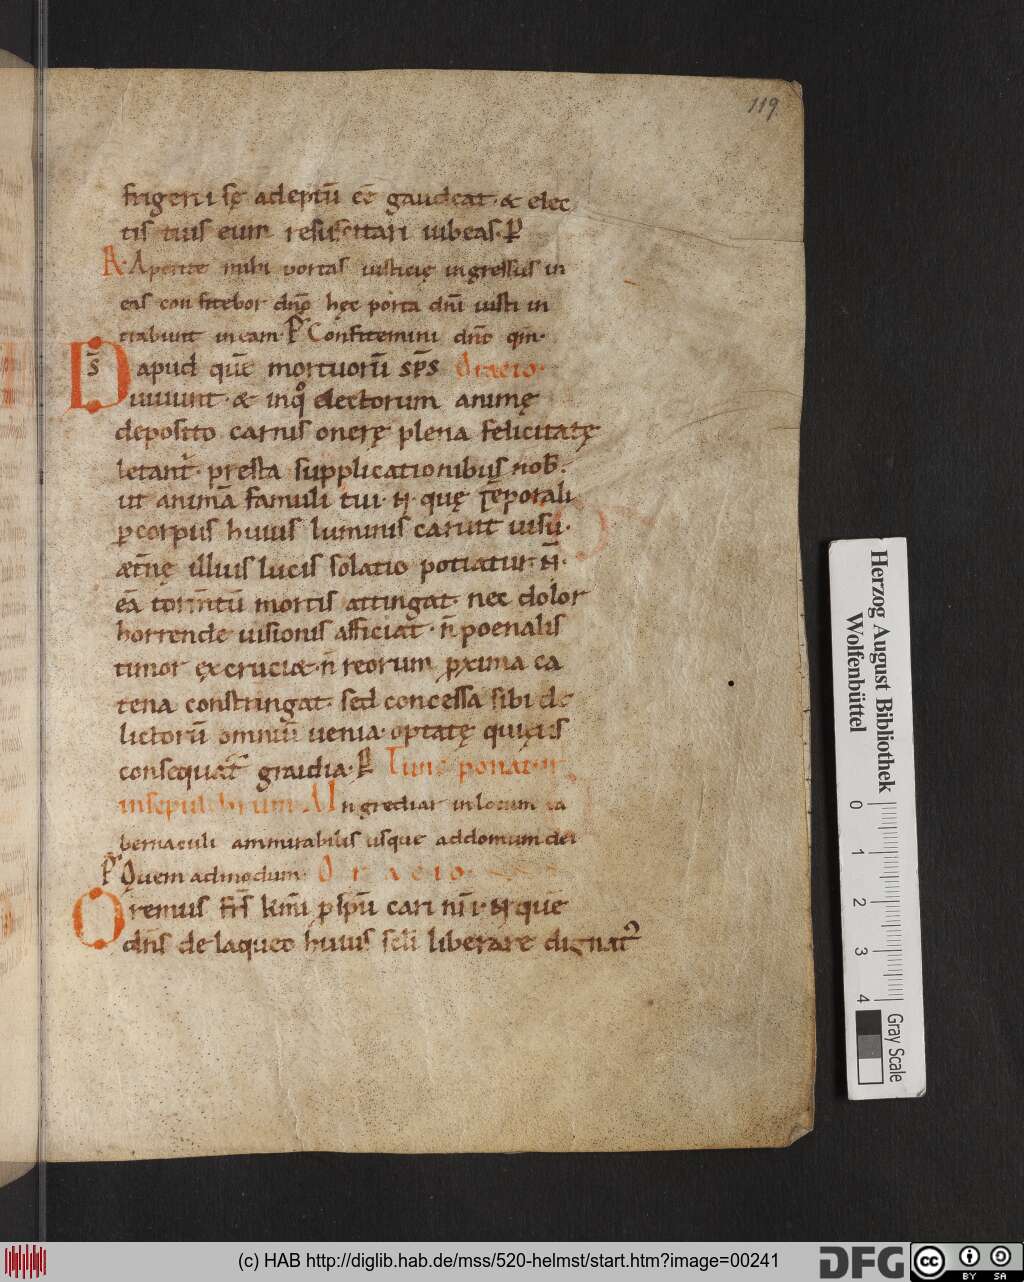 119
frigerii sę adeptū eē gaudeat · & elec
tis tuis eum resuscitari iubeas · P̄
A · Aperite mihi portas iusticię ingressus in
eas confitebor dnō hęc porta dnī iusti in
trabunt in eam · P̄ Confitemini dnō qm̄ ·
Ds̄ apud quē mortuorū sp̄s Oracio ·
uiuunt · & in quo electorum animę
deposito carnis onerę plena felicitatę
letant̄ · presta supplicationibus nob̄ ·
ut animā famuli tui · N · quę tēporali
p corpus huius luminis caruit uisū ·
æt̄nę illius lucis solatio potiatur · N̄ ·
eā torm̄tū mortis attingat · nec dolor
horrende uisionis afficiat · n̄ poenalis
timor ęxcruciæ · n̄ reorum pxima ca
tena constringat · sed concessa sibi de
lictorū omniū uenia · optatę quiętis
consequat̄ gaudia · P̄ Tunc ponatur
in sepulchrum · A Ingrediar in locum ta
bernaculi ammirabilis usque ad domum dei
P̄ Quem admodum · Oracio ·
Oremus frs̄ km̄i p sp̄ū cari nr̄i · N · quē
dn̄s de laqueo huius sc̄li liberare dignat'
Herzog August Bibliothek
Wolfenbüttel
0 1 2 3 4
Gray Scale
(c) HAB http://diglib.hab.de/mss/520-helmst/start.htm?image=00241
DFG
cc
BY SA